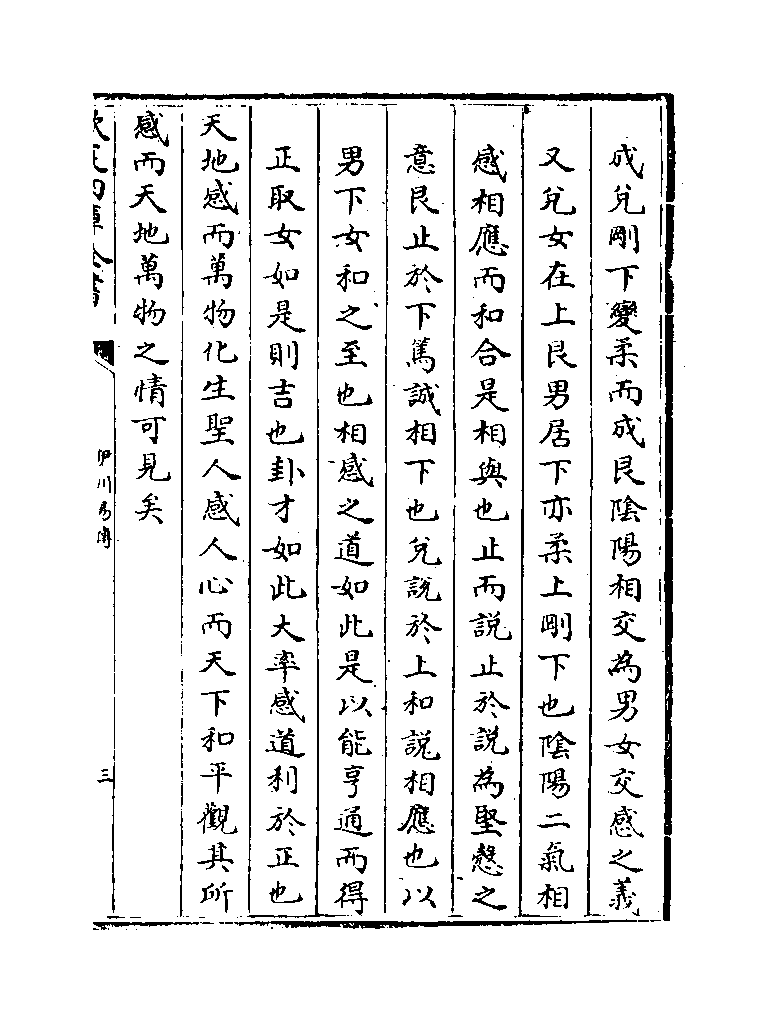 成兌剛下變柔而成艮陰陽相交為男女交感之義
又兌女在上艮男居下亦柔上剛下也陰陽二氣相
感相應而和合是相與也止而說止於說為堅慤之
意艮止於下篤誠相下也兌說於上和說相應也以
男下女和之至也相感之道如此是以能亨通而得
正取女如是則吉也卦才如此大率感道利於正也
天地感而萬物化生聖人感人心而天下和平觀其所
感而天地萬物之情可見矣
伊川易傳
三